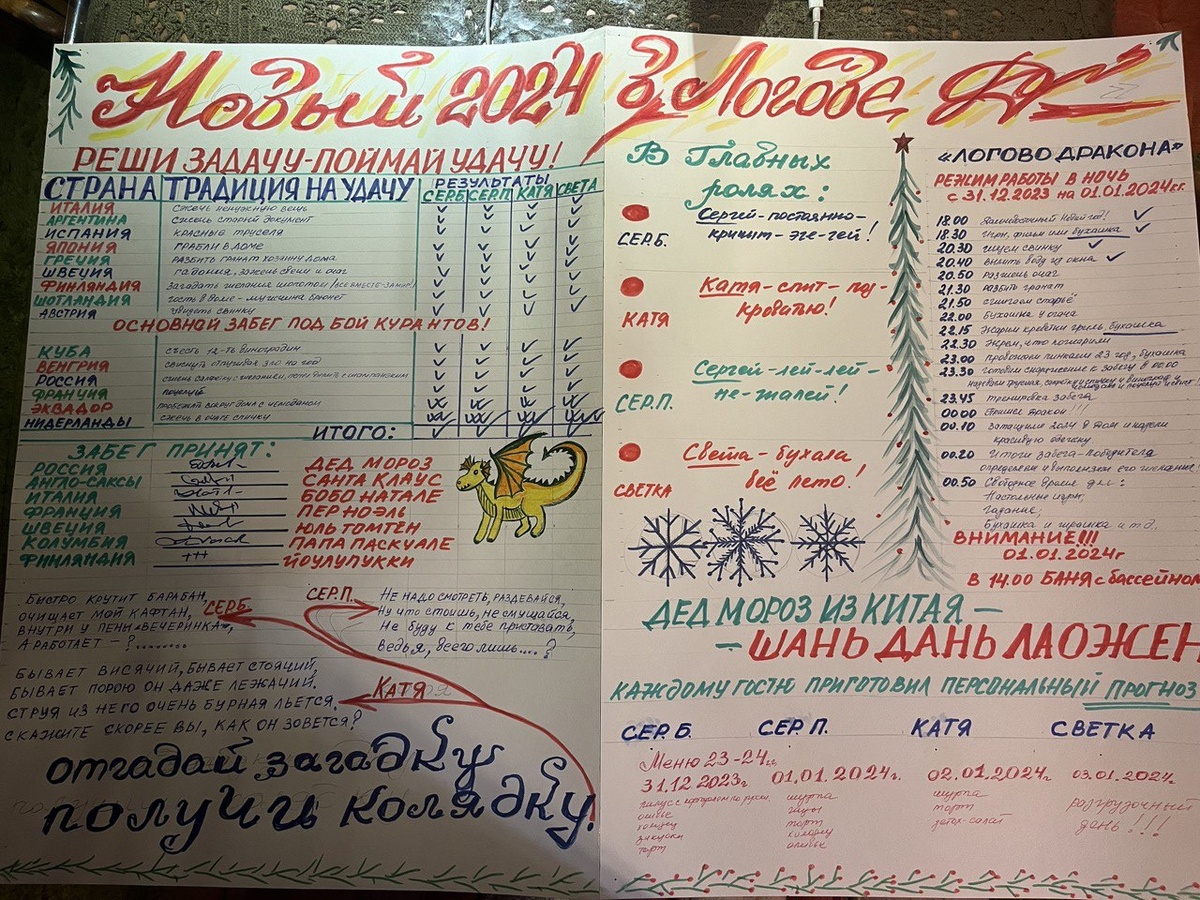 Новый 2024 в Логове
РЕШИ ЗАДАЧУ-ПОЙМАЙ УДАЧУ!
СТРАНА ТРАДИЦИЯ НА УДАЧУ РЕЗУЛЬТАТЫ
СЕРБ СЕРП КАТЯ СВЕТА
ИТАЛИЯ сжечь ненужную вещь
АРГЕНТИНА сжечь старый документ
ИСПАНИЯ красные труселя
ЯПОНИЯ грабли в доме
ГРЕЦИЯ разбить гранат хозяину дома
ШВЕЦИЯ солома, зажечь свечи и очаг
ФИНЛЯНДИЯ загадать желания шопотом (все вместе-
ШОТЛАНДИЯ гость в доме - мужчина брюнет
АВСТРИЯ увидать свинку
ОСНОВНОЙ ЗАБЕГ ПОД БОЙ КУРАНТОВ!
КУБА съесть 12-ть виноградин
ВЕНГРИЯ свиснуть отпугивая зло на год
РОССИЯ
ФРАНЦИЯ поцелуй
ЭКВАДОР пробежать вокруг дома с чемоданом
НИДЕРЛАНДЫ сжечь в очаге спичку
ИТОГО:
ЗАБЕГ ПРИНЯТ:
РОССИЯ ДЕД МОРОЗ
АНГЛО-САКСЫ САНТА КЛАУС
ИТАЛИЯ БОБО НАТАЛЕ
ФРАНЦИЯ ПЕР НОЭЛЬ
ШВЕЦИЯ ЮЛЬ ТОМТЕН
КОЛУМБИЯ ПАПА ПАСКУАЛЕ
ФИНЛЯНДИЯ +++ ЙОУЛУПУККИ
БЫСТРО КРУТИТ БАРАБАН,
ОЧИЩАЕТ МОЙ КАФТАН,
ВНУТРИ У ПЕНЫ «ВЕЧЕРИНКА»,
А РАБОТАЕТ - ?........
СЕРБ.
СЕР.П.
НЕ НАДО СМОТРЕТЬ, РАЗДЕВАЙСЯ,
НУ ЧТО СТОИШЬ, НЕ СМУЩАЙСЯ,
НЕ БУДУ К ТЕБЕ ПРИСТАВАТЬ,
ВЕДЬ Я, ВСЕГО ЛИШЬ....?
БЫВАЕТ ВИСЯЧИЙ, БЫВАЕТ СТОЯЧИЙ,
БЫВАЕТ ПОРОЮ ОН ДАЖЕ ЛЕЖАЧИЙ.
СТРУЯ ИЗ НЕГО ОЧЕНЬ БУРНАЯ ЛЬЕТСЯ,
СКАЖИТЕ СКОРЕЕ ВЫ, КАК ОН ЗОВЕТСЯ?
КАТЯ
отгадай загадку
получи колядку.
В Главных
ролях:
СЕР.Б.
Сергей-постоянно-
кричит-эге-гей!
КАТЯ
Катя-спит-под-
кроватью!
СЕР.П.
Сергей-лей-лей-
не-жалей!
СВЕТКА
Света-бухала
всё лето!
«ЛОГОВО ДРАКОНА»
РЕЖИМ РАБОТЫ В НОЧЬ
С 31.12.2023 на 01.01.2024 гг.
18.00 Новый год!
18.30 Игры, фильм или бухашка
20.30 ищем свинку
20.40 вылить воду из окна
20.50 разжечь очаг
21.30 разбить гранат
21.50 сжигаем старьё
22.00 Бухашка у очага
22.15 Жарим креветки гриль, бухашка
22.30 Жрем, что пожарили
23.00 провожаем пинками 23 год, бухашка
23.30 готовим снаряжение к забегу в 00.00
23.45 тренировка забега
00.00 Пришел дракон!!!
00.10 Затащили 2024 в дом и надели
красивую одежку.
00.20 Итоги забега-победителя
определяем и выполняем его желание
00.50 Свободное время для:
Настольные игры;
Гадание;
Бухашка и жрашка и т.д.
ВНИМАНИЕ!!!
01.01.2024г
В 14.00 БАНЯ с бассейном
ДЕД МОРОЗ ИЗ КИТАЯ –
– ШАНЬ ДАНЬ ЛАОЖЕН
КАЖДОМУ ГОСТЮ ПРИГОТОВИЛ ПЕРСОНАЛЬНЫЙ ПРОГНОЗ
СЕР.Б. СЕР.П. КАТЯ СВЕТКА
Меню 23-24 гг.
31.12.2023г. 01.01.2024г. 02.01.2024г. 03.01.2024г.
оливье
холодец
закуски
торт
шурпа
торт
холодец
оливье
шурпа
торт
детокс-салат
разгрузочный
день!!!